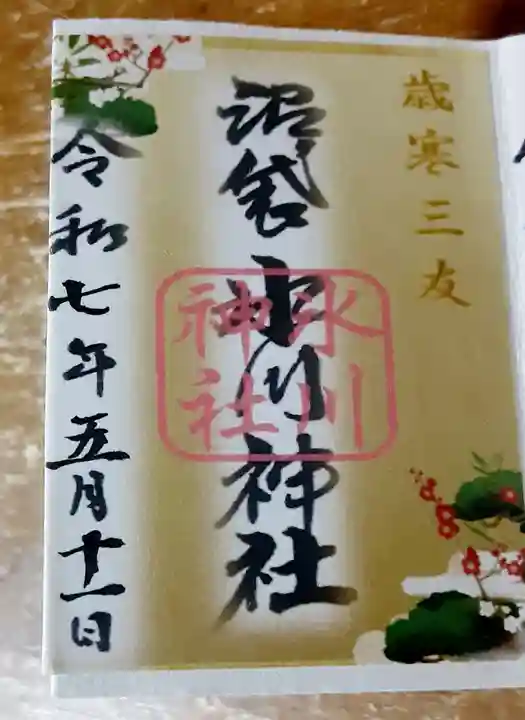 歳寒三友
沼袋氷川神社
氷川
神社
令和七年五月十一日